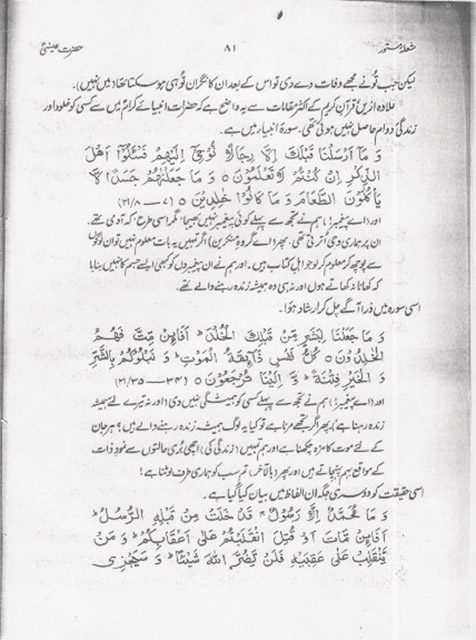 شعلۂ مستور ۸۱ حضرت عیسیٰؑ
لیکن جب تُو نے مجھے وفات دے دی تو اس کے بعد ان کا نگران تُو ہی ہو سکتا تھا، میں نہیں)۔
علاوہ ازیں قرآن کریم کے اکثر مقامات سے یہ واضح ہے کہ حضرات انبیائے کرامؑ میں سے کسی کو خلود اور
زندگیٔ دوام حاصل نہیں ہوئی تھی۔ سورۂ انبیاء میں ہے۔
وَ مَا اَرْسَلْنَا قَبْلَكَ اِلَّا رِجَالًا نُّوْحِيْٓ اِلَيْهِمْ فَسْئَلُوْٓا اَهْلَ
الذِّكْرِ اِنْ كُنْتُمْ لَا تَعْلَمُوْنَ ○ وَ مَا جَعَلْنٰهُمْ جَسَدًا لَّا
يَاْكُلُوْنَ الطَّعَامَ وَ مَا كَانُوْا خٰلِدِيْنَ ○ (۷ــ۲۱/۸)
اور (اے پیغمبر!) ہم نے تجھ سے پہلے کوئی پیغمبر نہیں بھیجا مگر اسی طرح کہ آدمی تھے۔
ان پر ہماری وحی اُترتی تھی۔ پھر (اے گروہِ منکرین) اگر تمہیں یہ بات معلوم نہیں تو ان لوگوں
سے پوچھ کر معلوم کر لو جو اہلِ کتاب ہیں۔ اور ہم نے ان پیغمبروں کو کبھی ایسے جسم کا نہیں بنایا
کہ کھانا نہ کھاتے ہوں اور نہ ہی وہ ہمیشہ زندہ رہنے والے تھے۔
اسی سورہ میں ذرا آگے چل کر ارشاد ہوا۔
وَ مَا جَعَلْنَا لِبَشَرٍ مِّنْ قَبْلِكَ الْخُلْدَ ؕ اَفَا۟ئِنْ مِّتَّ فَهُمُ
الْخٰلِدُوْنَ ○ كُلُّ نَفْسٍ ذَآئِقَةُ الْمَوْتِ ؕ وَ نَبْلُوْكُمْ بِالشَّرِّ
وَ الْخَيْرِ فِتْنَةً ؕ وَ اِلَيْنَا تُرْجَعُوْنَ ○ (۳۴ــ۲۱/۳۵)
اور (اے پیغمبر!) ہم نے تجھ سے پہلے کسی کو ہمیشگی نہیں دی (اور نہ تیرے لئے ہمیشہ
زندہ رہنا ہے)، پھر اگر تجھے مرنا ہے تو کیا یہ لوگ ہمیشہ زندہ رہنے والے ہیں؟ ہر جان
کے لئے موت کا مزہ چکھنا ہے اور ہم تمہیں (زندگی کی) اچھی بُری حالتوں سے نمودِ ذات
کے مواقع بہم پہنچاتے ہیں اور پھر (بالآخر) تم سب کو ہماری طرف لوٹنا ہے!
اسی حقیقت کو دوسری جگہ ان الفاظ میں بیان کیا گیا ہے۔
وَ مَا مُحَمَّدٌ اِلَّا رَسُوْلٌ ۚ قَدْ خَلَتْ مِنْ قَبْلِهِ الرُّسُلُ ؕ
اَفَا۟ئِنْ مَّاتَ اَوْ قُتِلَ انْقَلَبْتُمْ عَلٰٓى اَعْقَابِكُمْ ؕ وَ مَنْ
يَّنْقَلِبْ عَلٰى عَقِبَيْهِ فَلَنْ يَّضُرَّ اللّٰهَ شَيْئًا ؕ وَ سَيَجْزِى